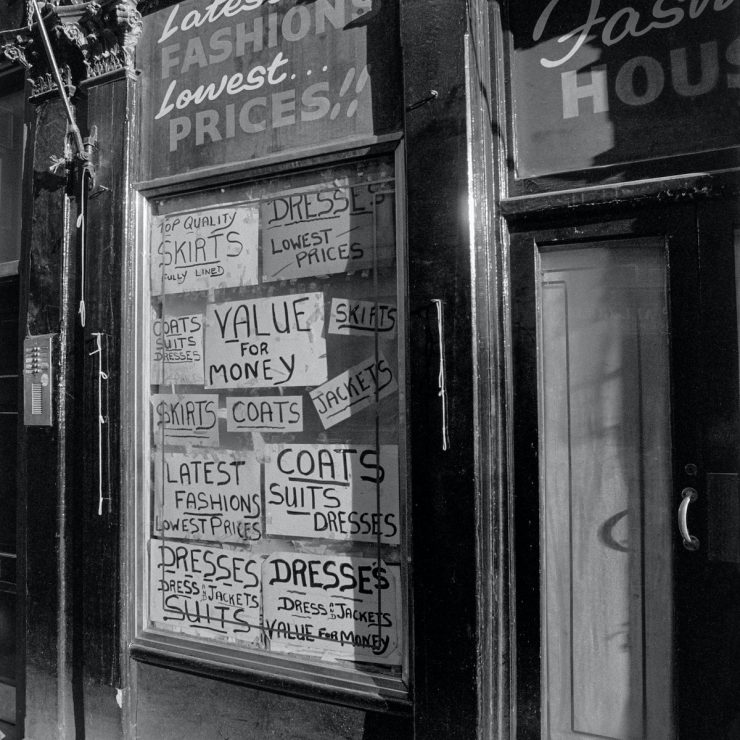 Latest
FASHIONS
Lowest...
PRICES!!
Fashion
HOUS
TOP QUALITY
SKIRTS
FULLY LINED
DRESSES
LOWEST
PRICES
COATS
SUITS
DRESSES
VALUE
FOR
MONEY
SKIRTS
JACKETS
SKIRTS
COATS
LATEST
FASHIONS
LOWEST PRICES
COATS
SUITS
DRESSES
DRESSES
DRESS AND JACKETS
SUITS
DRESSES
DRESS AND JACKETS
VALUE FOR MONEY